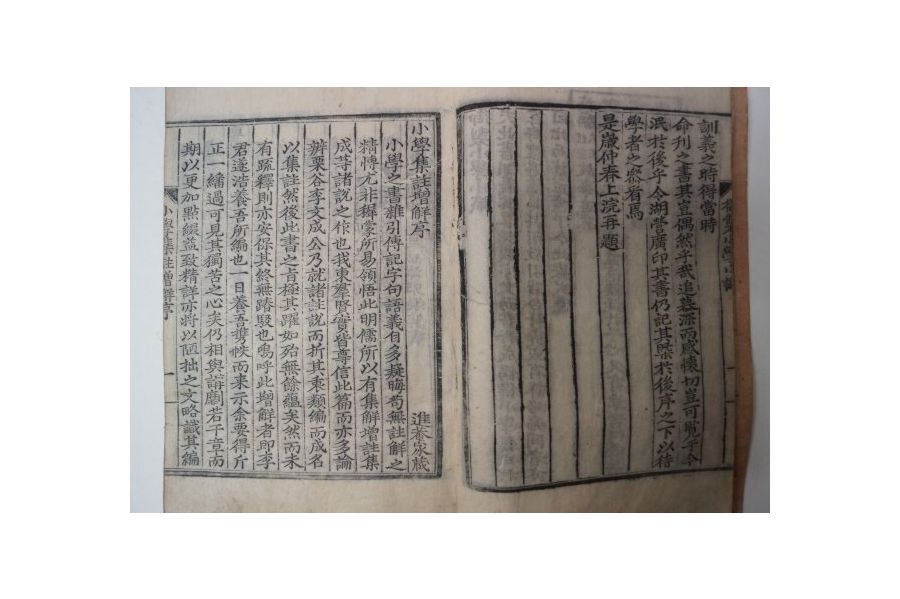 訓義之時得當時
命刋之書其豈偶然乎哉追慕深而感懷切豈可覽乎今
泯於後乎今湖營廣印其書仍記其槩於後序之下以待
學者之察看焉
是歲仲春上浣再題
小學集註增解序
進菴家藏
小學之書雜引傳記字句語義自多疑晦苟無註解之
精愽尤非穉蒙所易領悟此明儒所以有集解增註集
成等諸說之作也我東羣賢實皆尊信此篇而亦多論
辨栗谷李文成公乃就諸註說而折其衷類編而成名
以集註然後此書之旨極其躍如殆無餘蘊矣然而未
有疏釋則亦安保其終無踳駁也嗚呼此增解者即李
君遂浩養吾所編也一日養吾携帙而來示余要得斤
正一繙過可見其獨苦之心矣仍相與講劘若干章而
期以更加點綴益致精詳亦將以陋拙之文略識其編
小學集註增解序
一